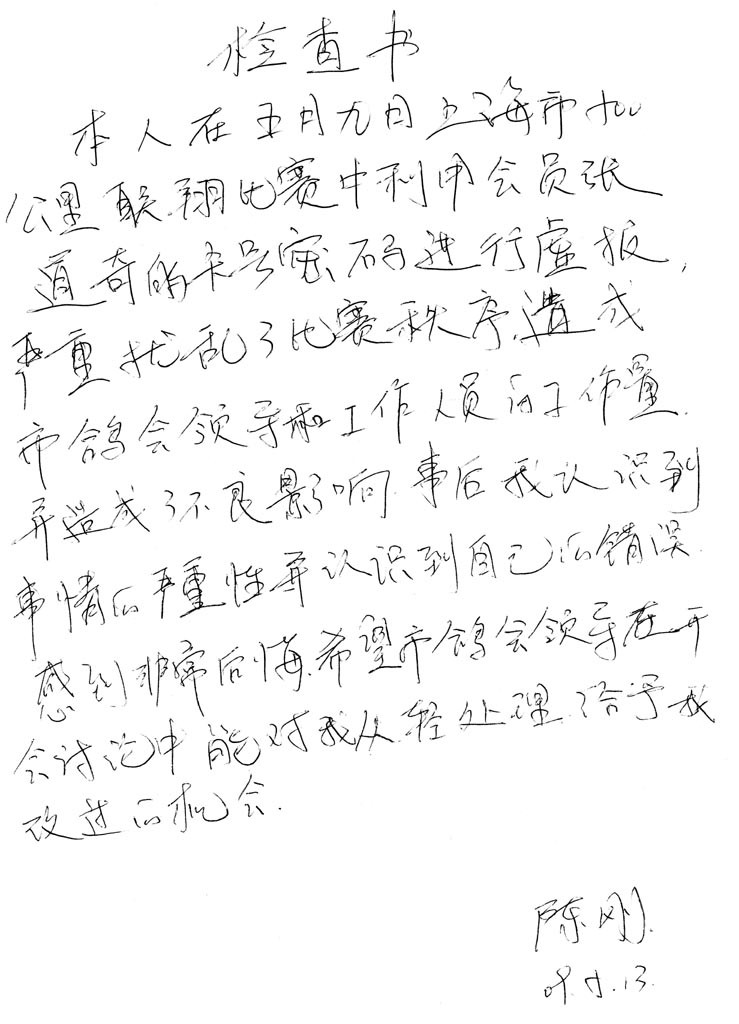 检查书
本人在五月九日上海市400
公里联翔比赛中利用会员张
道奇的卡号密码进行虚报,
严重扰乱了比赛秩序,造成
市鸽会领导和工作人员的工作量.
并造成了不良影响.事后我认识到
事情的严重性并认识到自己的错误.
感到非常后悔.希望市鸽会领导在开
会讨论中能对我从轻处理.给予我
改过的机会.
陈刚.
09.5.13.